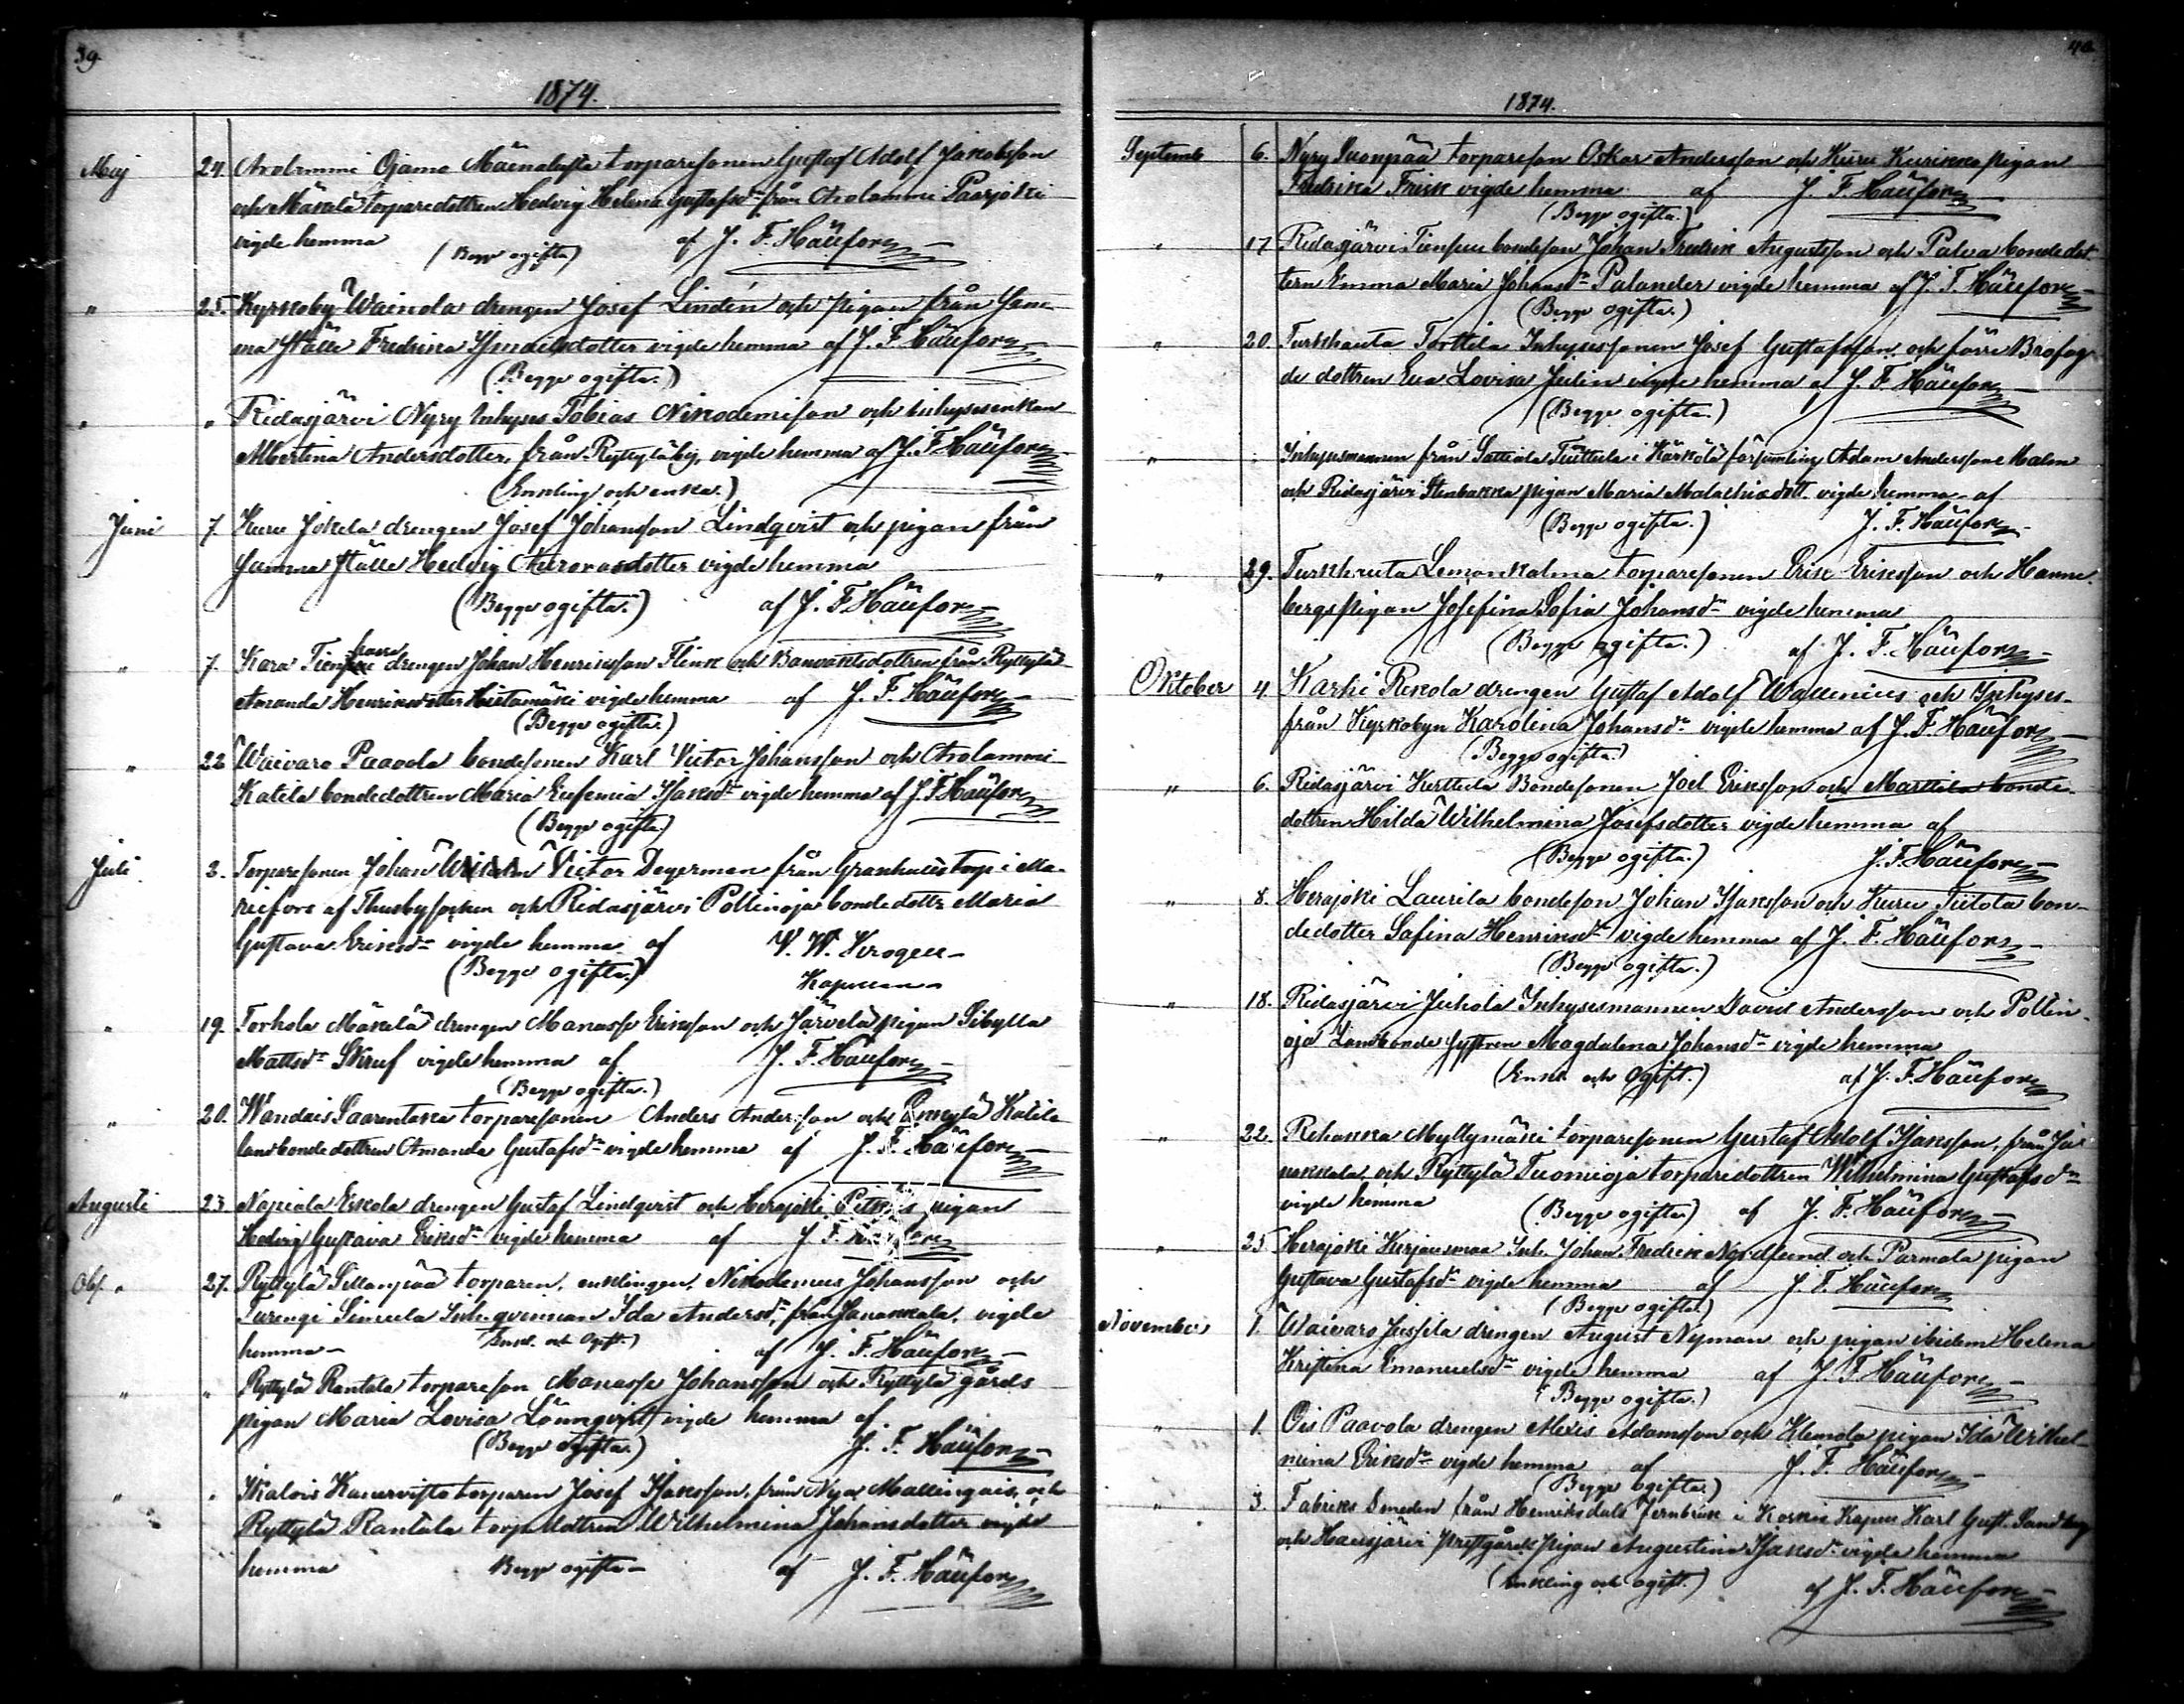 39.
1874.
Maj 24. Arolammi Ojamo Mäenalusta torparesonen Gustaf Adolf Jakobsson
och Mäkelä torparedottren Hedvig Helena Gustafsdr från Arolammi Paarjoki
vigde hemma (Begge ogifta) af J. F. Häufors
" 25. Kyrkoby Wainola drengen Josef Lindén och pigan från sam-
ma ställe Fredrika Ismaelsdotter vigde hemma af J. F. Häufors
(Begge ogifta.)
" " Ridasjärvi Nyry Inhyses Tobias Nikodemison och inhysesenkan
Albertina Andersdotter, från Ryttyläby, vigde hemma af J. F. Häufors
(Enkling och enka.)
Juni 7. Kuru Jokela drengen Josef Johansson Lindqvist och pigan från
samma ställe Hedvig Aurorasdotter vigde hemma
(Begge ogifta.) af J. F. Häufors
" 7. Kara drengen Johan Henriksson Flink och Banvaktsdottren från Ryttylä
Amanda Henriksdotter Hietamäki vigde hemma af J. F. Häufors
(Begge ogifta.)
" 22 Waivaro Paavola bondesonen Karl Victor Johansson och Arolammi
Katila bondedottren Maria Eufemia Isaksdr vigde hemma af J. F. Häufors
(Begge ogifta.)
Juli 3. Torparesonen Johan Victor Degerman från Granhults torp i Ma-
riefors af Thusby socken och Ridasjärvi Pollinoja bondedottr Maria
Gustava Eriksdr vigde hemma af V. W. Krogell
(Begge ogifta.) Kapellan
" 19. Torhola Mäkelä drengen Manasse Eriksson och Järvelä pigan Sibylla
Mattsdr Skruf vigde hemma af J. F. Häufors
(Begge ogifta.)
" 20. Wandais Saarentaka torparesonen Anders Andersson och Katila
landbondedottren Amanda Gustafsdr vigde hemma af J. F. Häufors
Augusti 23. Napiala Eskola drengen Gustaf Lindqvist och Herajoki pigan
Hedvig Gustava Eriksdr vigde hemma af J. F. Häufors
Obs. " 27. Ryttylä Sillanpää torparen, enklingen, Nikodemus Johansson och
Turengi Simula Inh. qvinnan Ida Andersdr, från Janakkala, vigde
hemma (Enkl. och Ogift.) af J. F. Häufors
" " Ryttylä Rantala torpareson Manasse Johansson och Ryttylä gårds
pigan Maria Lovisa Lönnqvist vigde hemma af
(Begge ogifta.) J. F. Häufors
" " Skalois Kanervisto torparen Josef Isaksson, från Nya Mallingais, och
Ryttylä Rantala torp.dottren Wilhelmina Johansdotter vigde
hemma Begge ogifta af J. F. Häufors
40.
1874.
Septemb 6. Nyry Suonpää torpareson Oskar Andersson och Kuru Kurikko pigan
Fredrika Frisk vigde hemma af J. F. Häufors
(Begge ogifta.)
" 17 Ridasjärvi Tienpuu bondeson Johan Fredrik Augustsson och Palva bondedot-
tern Emma Maria Johansdr Palander vigde hemma af J. F. Häufors
(Begge ogifta.)
" 20. Turkhauta Torttila Inhysessonen Josef Gustafsson och förre Brofog-
de dottren Eva Lovisa Julin vigde hemma af J. F. Häufors
(Begge ogifta.)
" " Inhysesmannen från Sattiala Tuttula i Kärkölä församling Adam Andersson Malm
och Ridasjärvi Stenbacka pigan Maria Malachiædott. vigde hemma af
(Begge ogifta.) J. F. Häufors
" 29. Turkhauta Lemonkalma torparesonen Erik Eriksson och Hanne-
bergs pigan Josefina Sofia Johansdr vigde hemma
(Begge ogifta.) af J. F. Häufors
Oktober 4. Karhi Rekola drengen Gustaf Adolf Wallenius och Inhyses-
från Kyrkobyn Karolina Johansdr vigde hemma af J. F. Häufors
(Begge ogifta.)
" 6. Ridasjärvi Kerttula Bondesonen Joel Eriksson och Marttila bonde-
dottren Hilda Wilhelmina Josefsdotter vigde hemma af
(Begge ogifta.) J. F. Häufors
" 8. Herajoki Laurila bondeson Johan Isaksson och Kuru Tiitola bon-
dedotter Safina Henriksdr vigde hemma af J. F. Häufors
(Begge ogifta.)
" 18. Ridasjärvi Juhola Inhysesmannen David Andersson och Pollin-
oja Landbonde systren Magdalena Johansdr vigde hemma
(Enkl. och Ogift.) af J. F. Häufors
" 22. Rehakka Myllymäki torparesonen Gustaf Adolf Isaksson, från Ja-
nakkala, och Ryttylä Tuomioja torparedottren Wilhelmina Gustafsdr
vigde hemma (Begge ogifta) af J. F. Häufors
" 25 Herajoki Kirjansmaa Inh. Johan Fredrik Nordlund och Parmala pigan
Gustava Gustafsdr vigde hemma af J. F. Häufors
(Begge ogifta.)
November 1. Waivaro Jussila drengen August Nyman och pigan ibidem Helena
Kristina Emanuelsdr vigde hemma af J. F. Häufors
(Begge ogifta.)
" 1. Ois Paavola drengen Alexis Adamsson och Klemola pigan Ida Wilhel-
mina Eriksdr vigde hemma af J. F. Häufors
(Begge ogifta.)
" 3. Fabriks Smeden från Henriksdals Jernbruk i Koskis Kapell Karl Gust. Sandberg
och Hausjärvi prestgårds pigan Augustina Isaksdr vigde hemma
(Enkling och ogift.) af J. F. Häufors